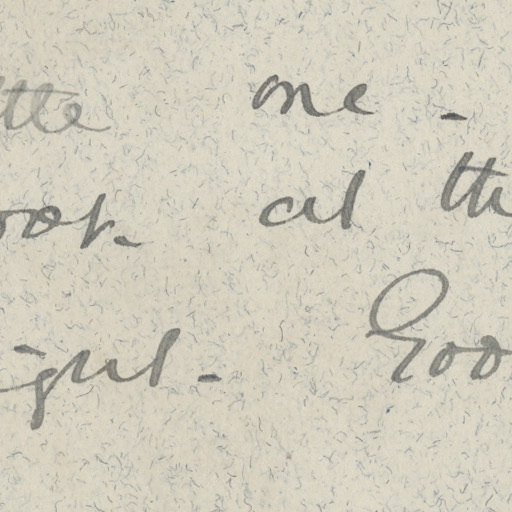 ttle one -
ook at th
ight - Goo